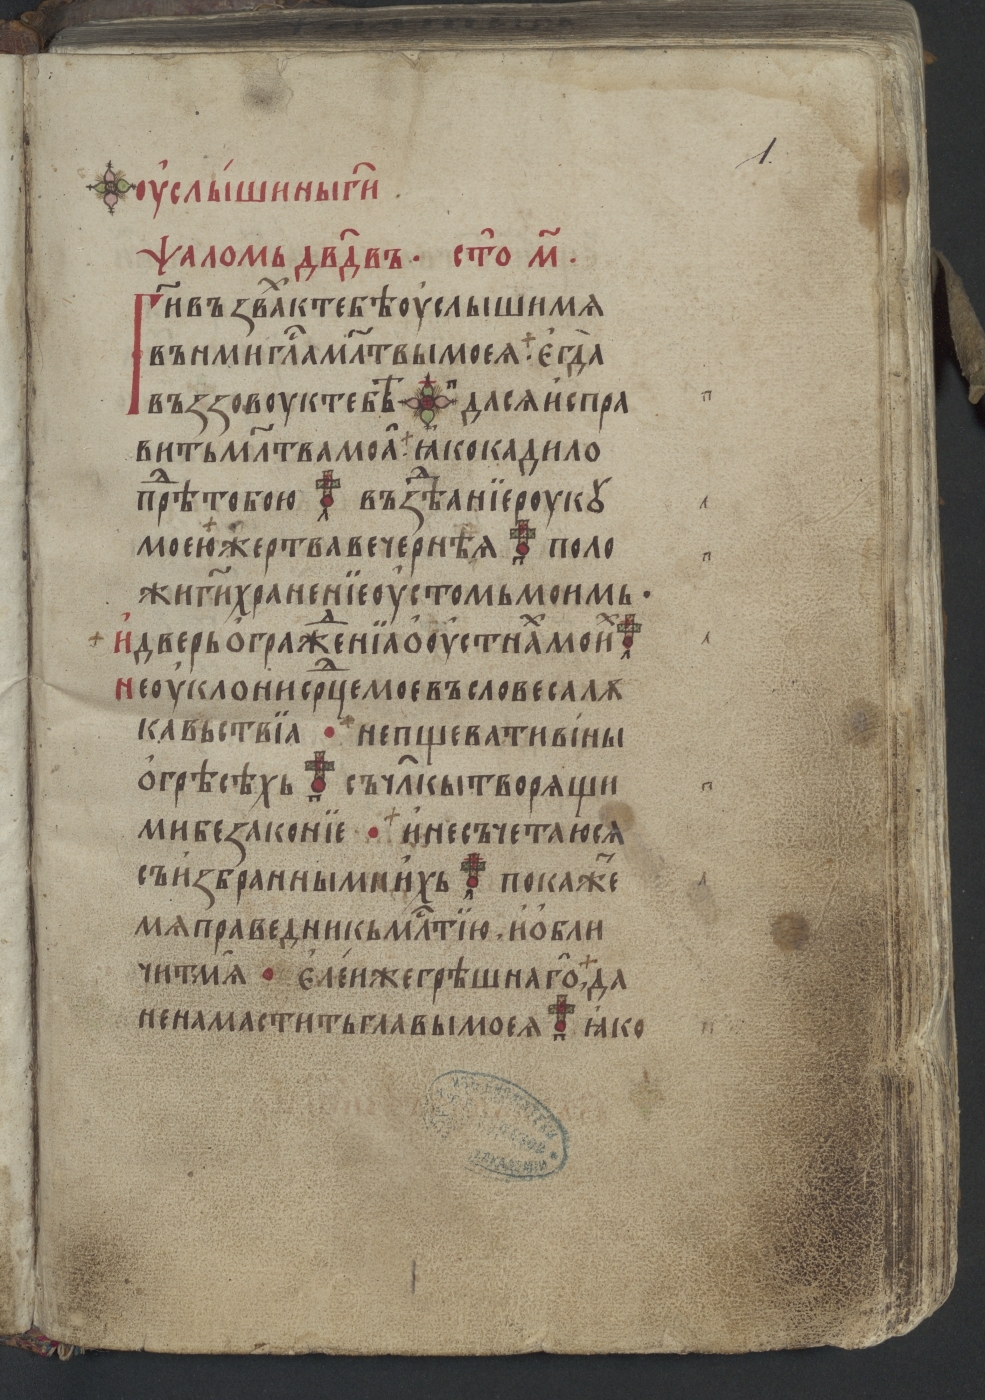 1.
оуслышиныг҃и
ѱаломь дв҃двъ · ст҃о м҃ ·
Г҃ивъзвахктебѣоуслышимѧ
вънмигл҃амл҃твымоеѧ · егда
въззовоуктебѣ дасѧиспра п
витьмл҃твамоа · ꙗкокадило
прѣдтобою въздѣанїероукꙋ л
моеюжертвавечернѣѧ поло п
жиг҃ихраненїеоустомьмоимь ·
идверьогражденїаоустнахмоих л
неоуклонисрд҃цемоевъсловесалѫ
кавьствїа · непщеватививны
огрѣсѣхь съчл҃кытворѧщи п
мибезаконїе · инесъчетаюсѧ
съизбраннымиихь покаже л
мѧправедникьмл҃тїю . иобли
читмѧ · елеижегрѣшнаго , да
ненамаститьглавымоеѧ ꙗко п